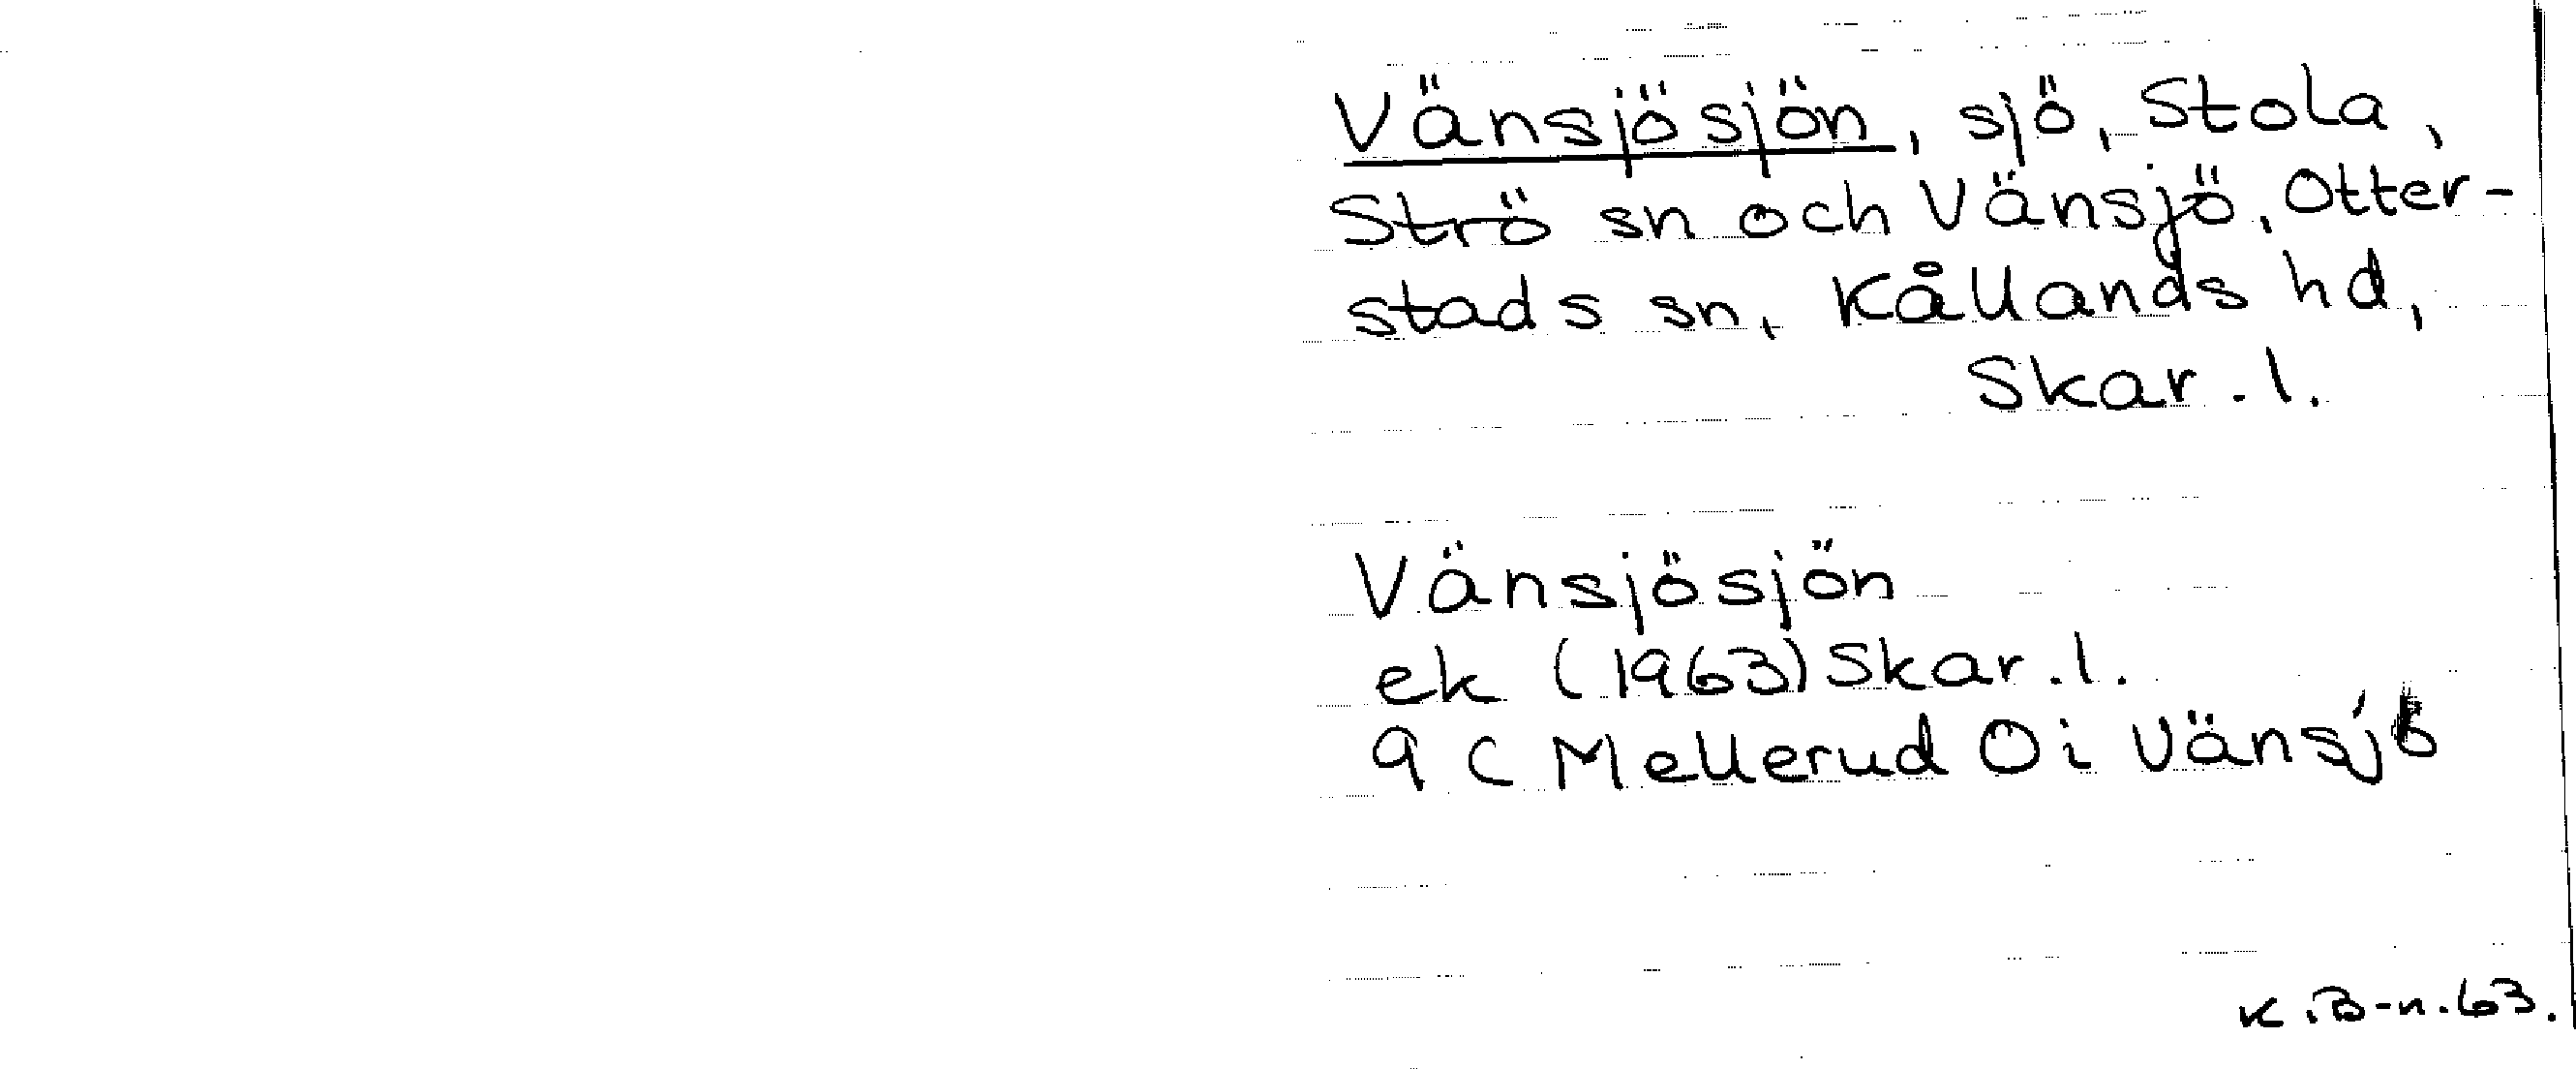 Vänsjösjön, sjö, Stola,
Strö sn och Vänsjö, Otter-
stads sn, Kållands hd,
Skar. l.
Vänsjösjön
ek (1963) Skar. l.
9 C Mellerud Oi Vänsjö
K.B-n.63.